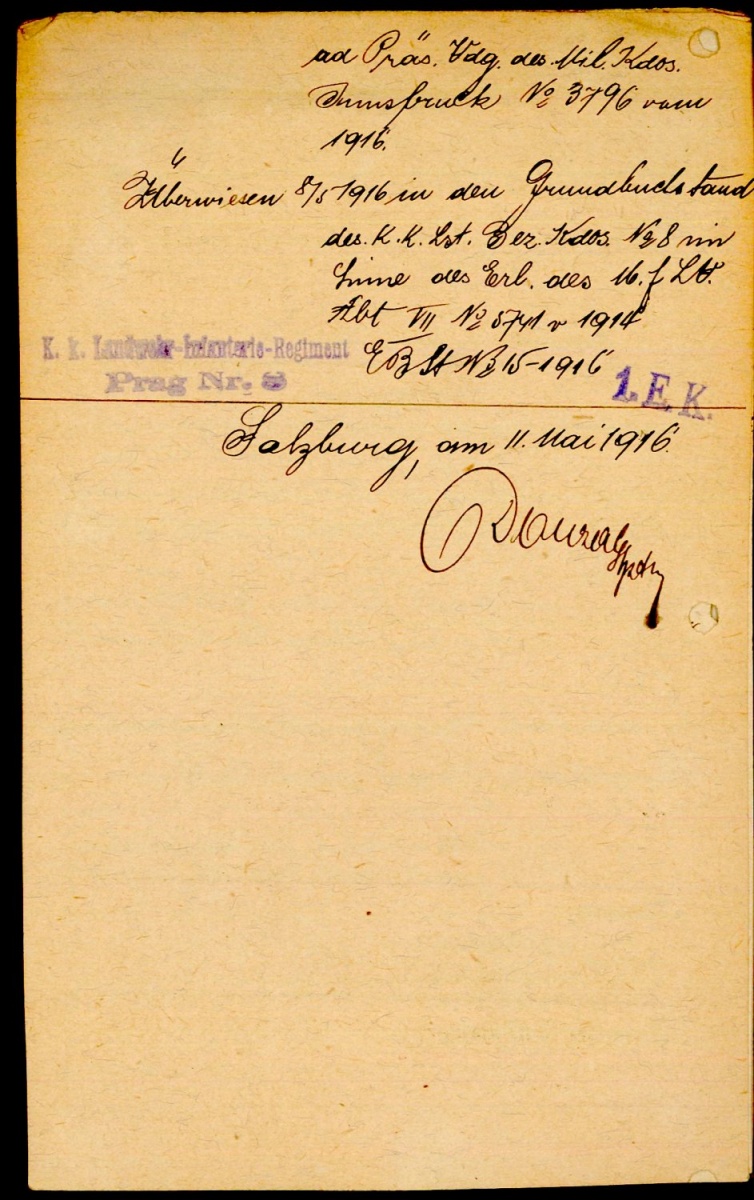 ad Präs. Vdg. des Mil. Kdos.
Innsbruck No 3796 vom
1916.
Überwiesen 8/5 1916 in den Grundbuchstand
des K. K. Lst. Bez. Kdos. No 8 im
Sinne des Erl. des M. f. LV.
Abt VII No 5741 v 1914
EB St No 15-1916
K. k. Landwehr-Infanterie-Regiment
Prag Nr. 8
1. E. K.
Salzburg, am 11. Mai 1916.